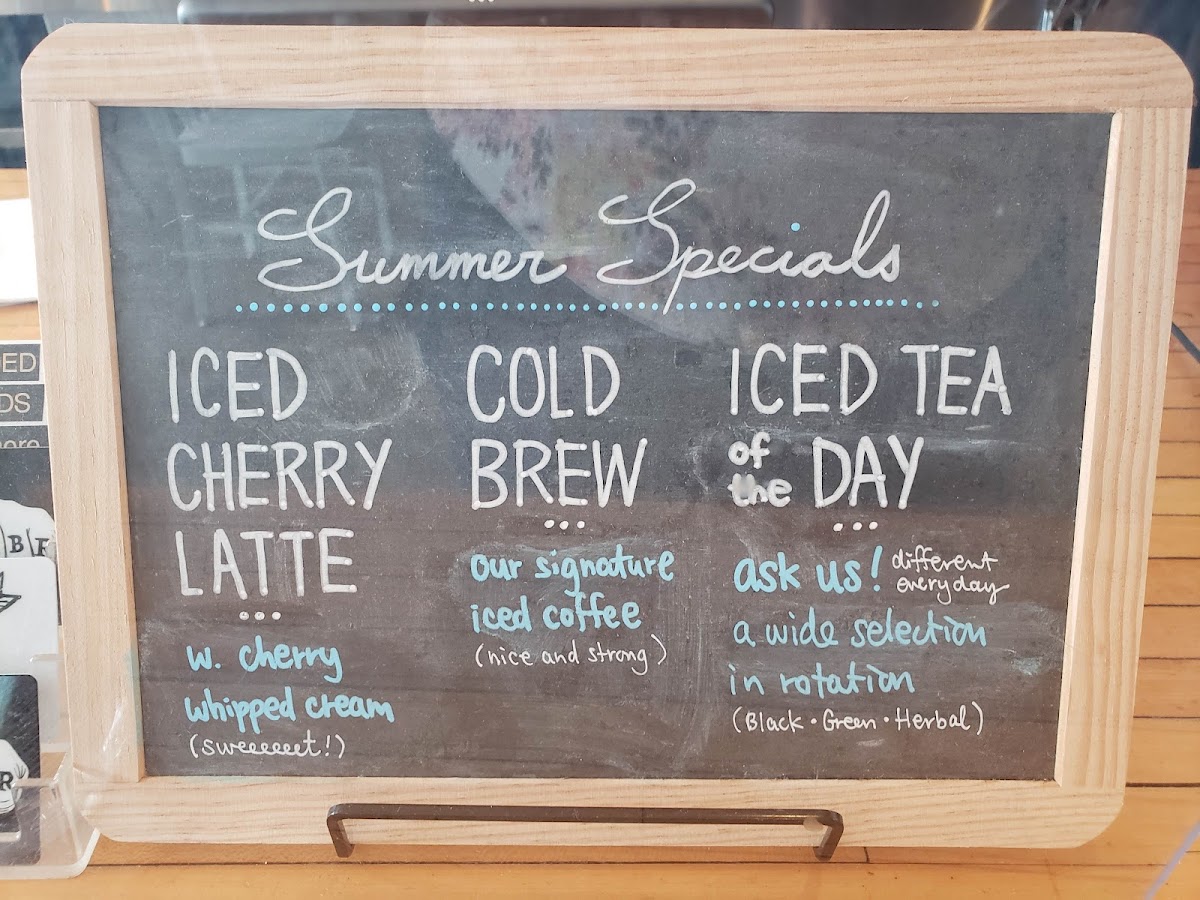 Summer Specials
ICED
CHERRY
LATTE
w. cherry
whipped cream
(sweeeeeet!)
COLD
BREW
our signature
iced coffee
(nice and strong)
ICED TEA
of the DAY
ask us! different everyday
a wide selection
in rotation
(Black · Green · Herbal)
ED
DS
R